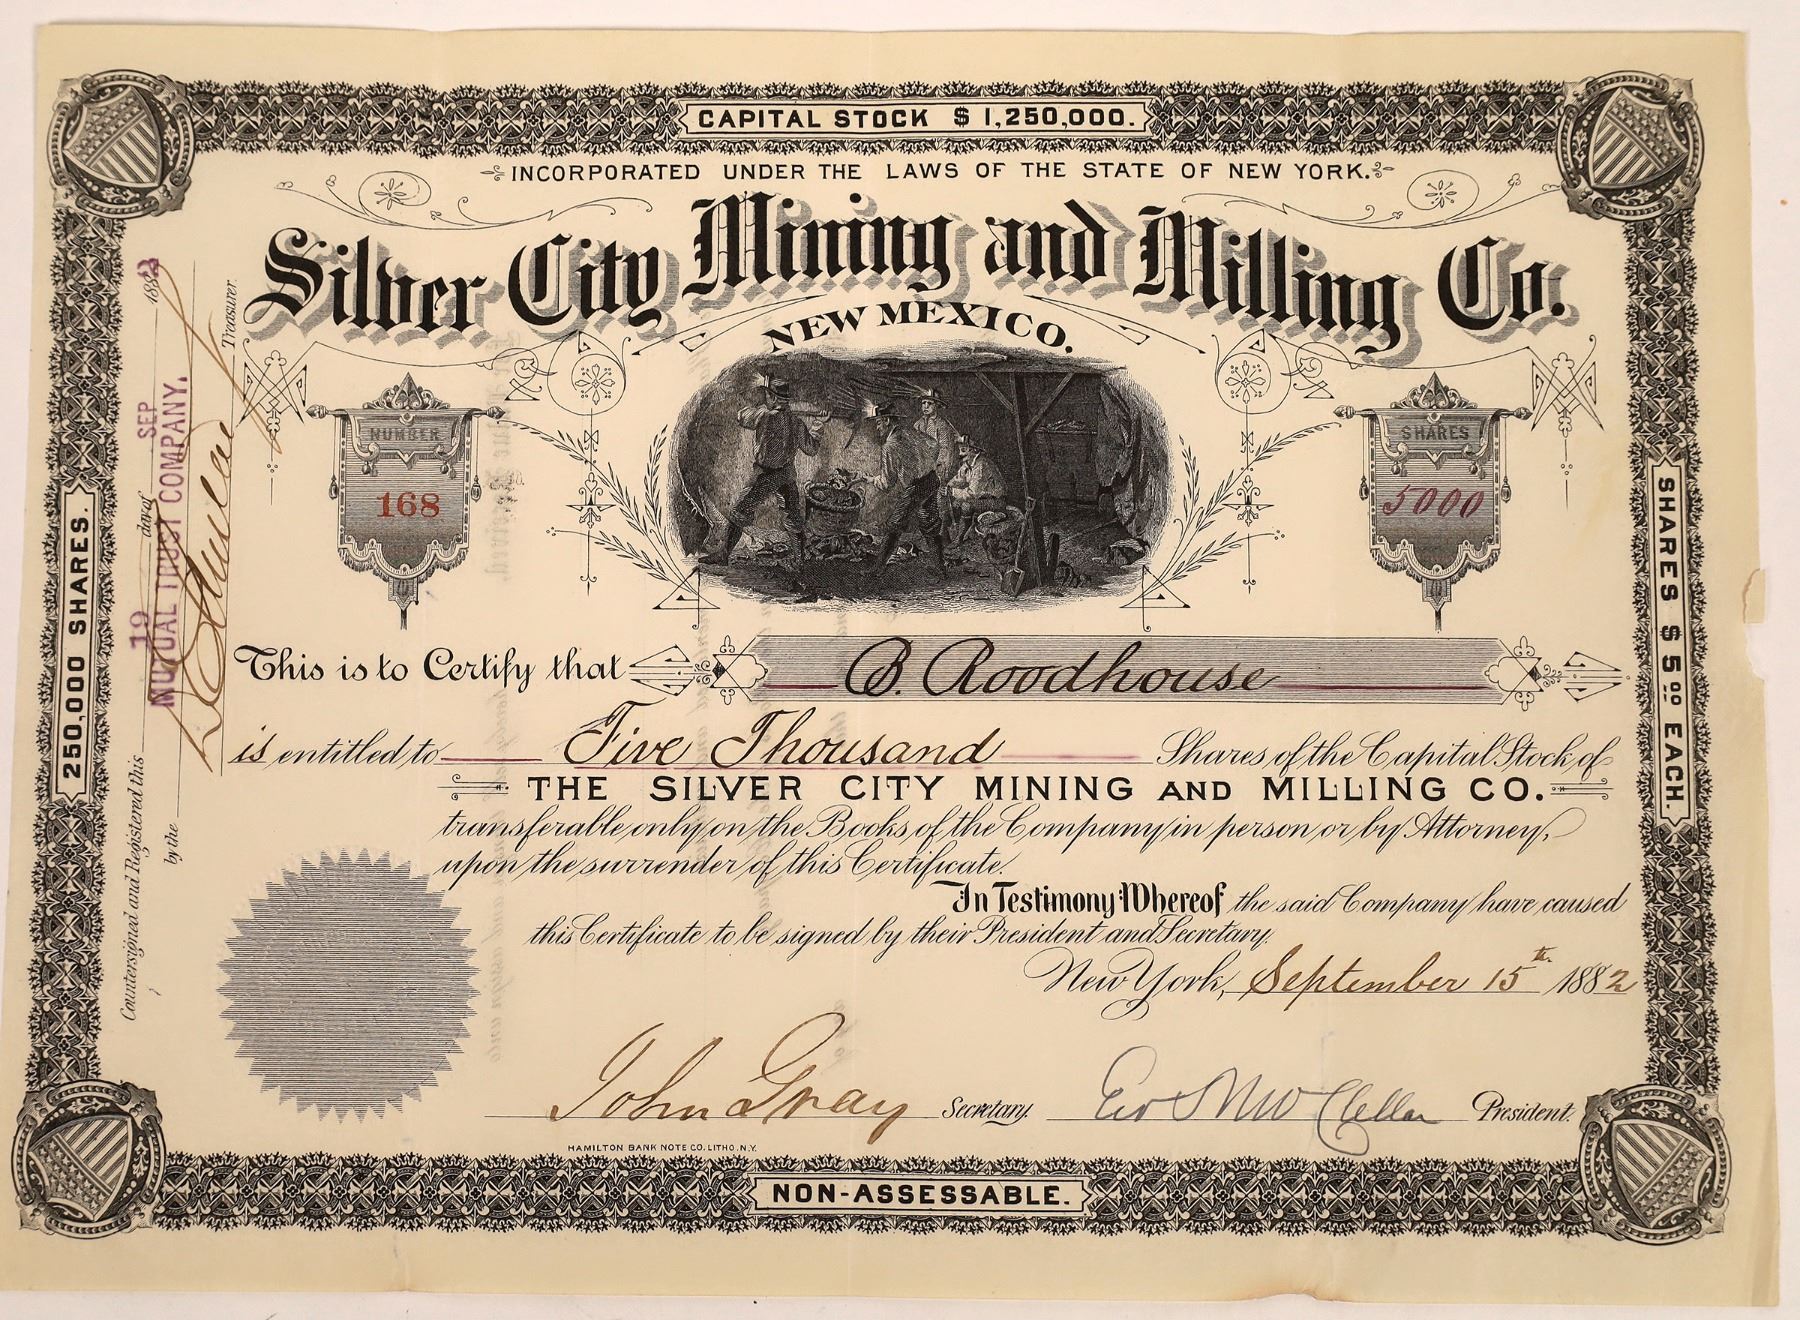 CAPITAL STOCK $ 1,250,000.
INCORPORATED UNDER THE LAWS OF THE STATE OF NEW YORK.
Silver City Mining and Milling Co.
NEW MEXICO.
NUMBER
168
SHARES
5000
This is to Certify that B. Roodhouse
is entitled to Five Thousand Shares of the Capital Stock of
THE SILVER CITY MINING AND MILLING CO.
transferable only on the Books of the Company in person or by Attorney,
upon the surrender of this Certificate.
In Testimony Whereof the said Company have caused
this Certificate to be signed by their President and Secretary.
New York, September 15th 1882
John Gray Secretary. President.
HAMILTON BANK NOTE CO. LITHO. N.Y.
NON-ASSESSABLE.
250,000 SHARES.
SHARES $ 5 00 EACH.
Countersigned and Registered this 19 day of SEP 188
by the MUTUAL TRUST COMPANY.
Treasurer